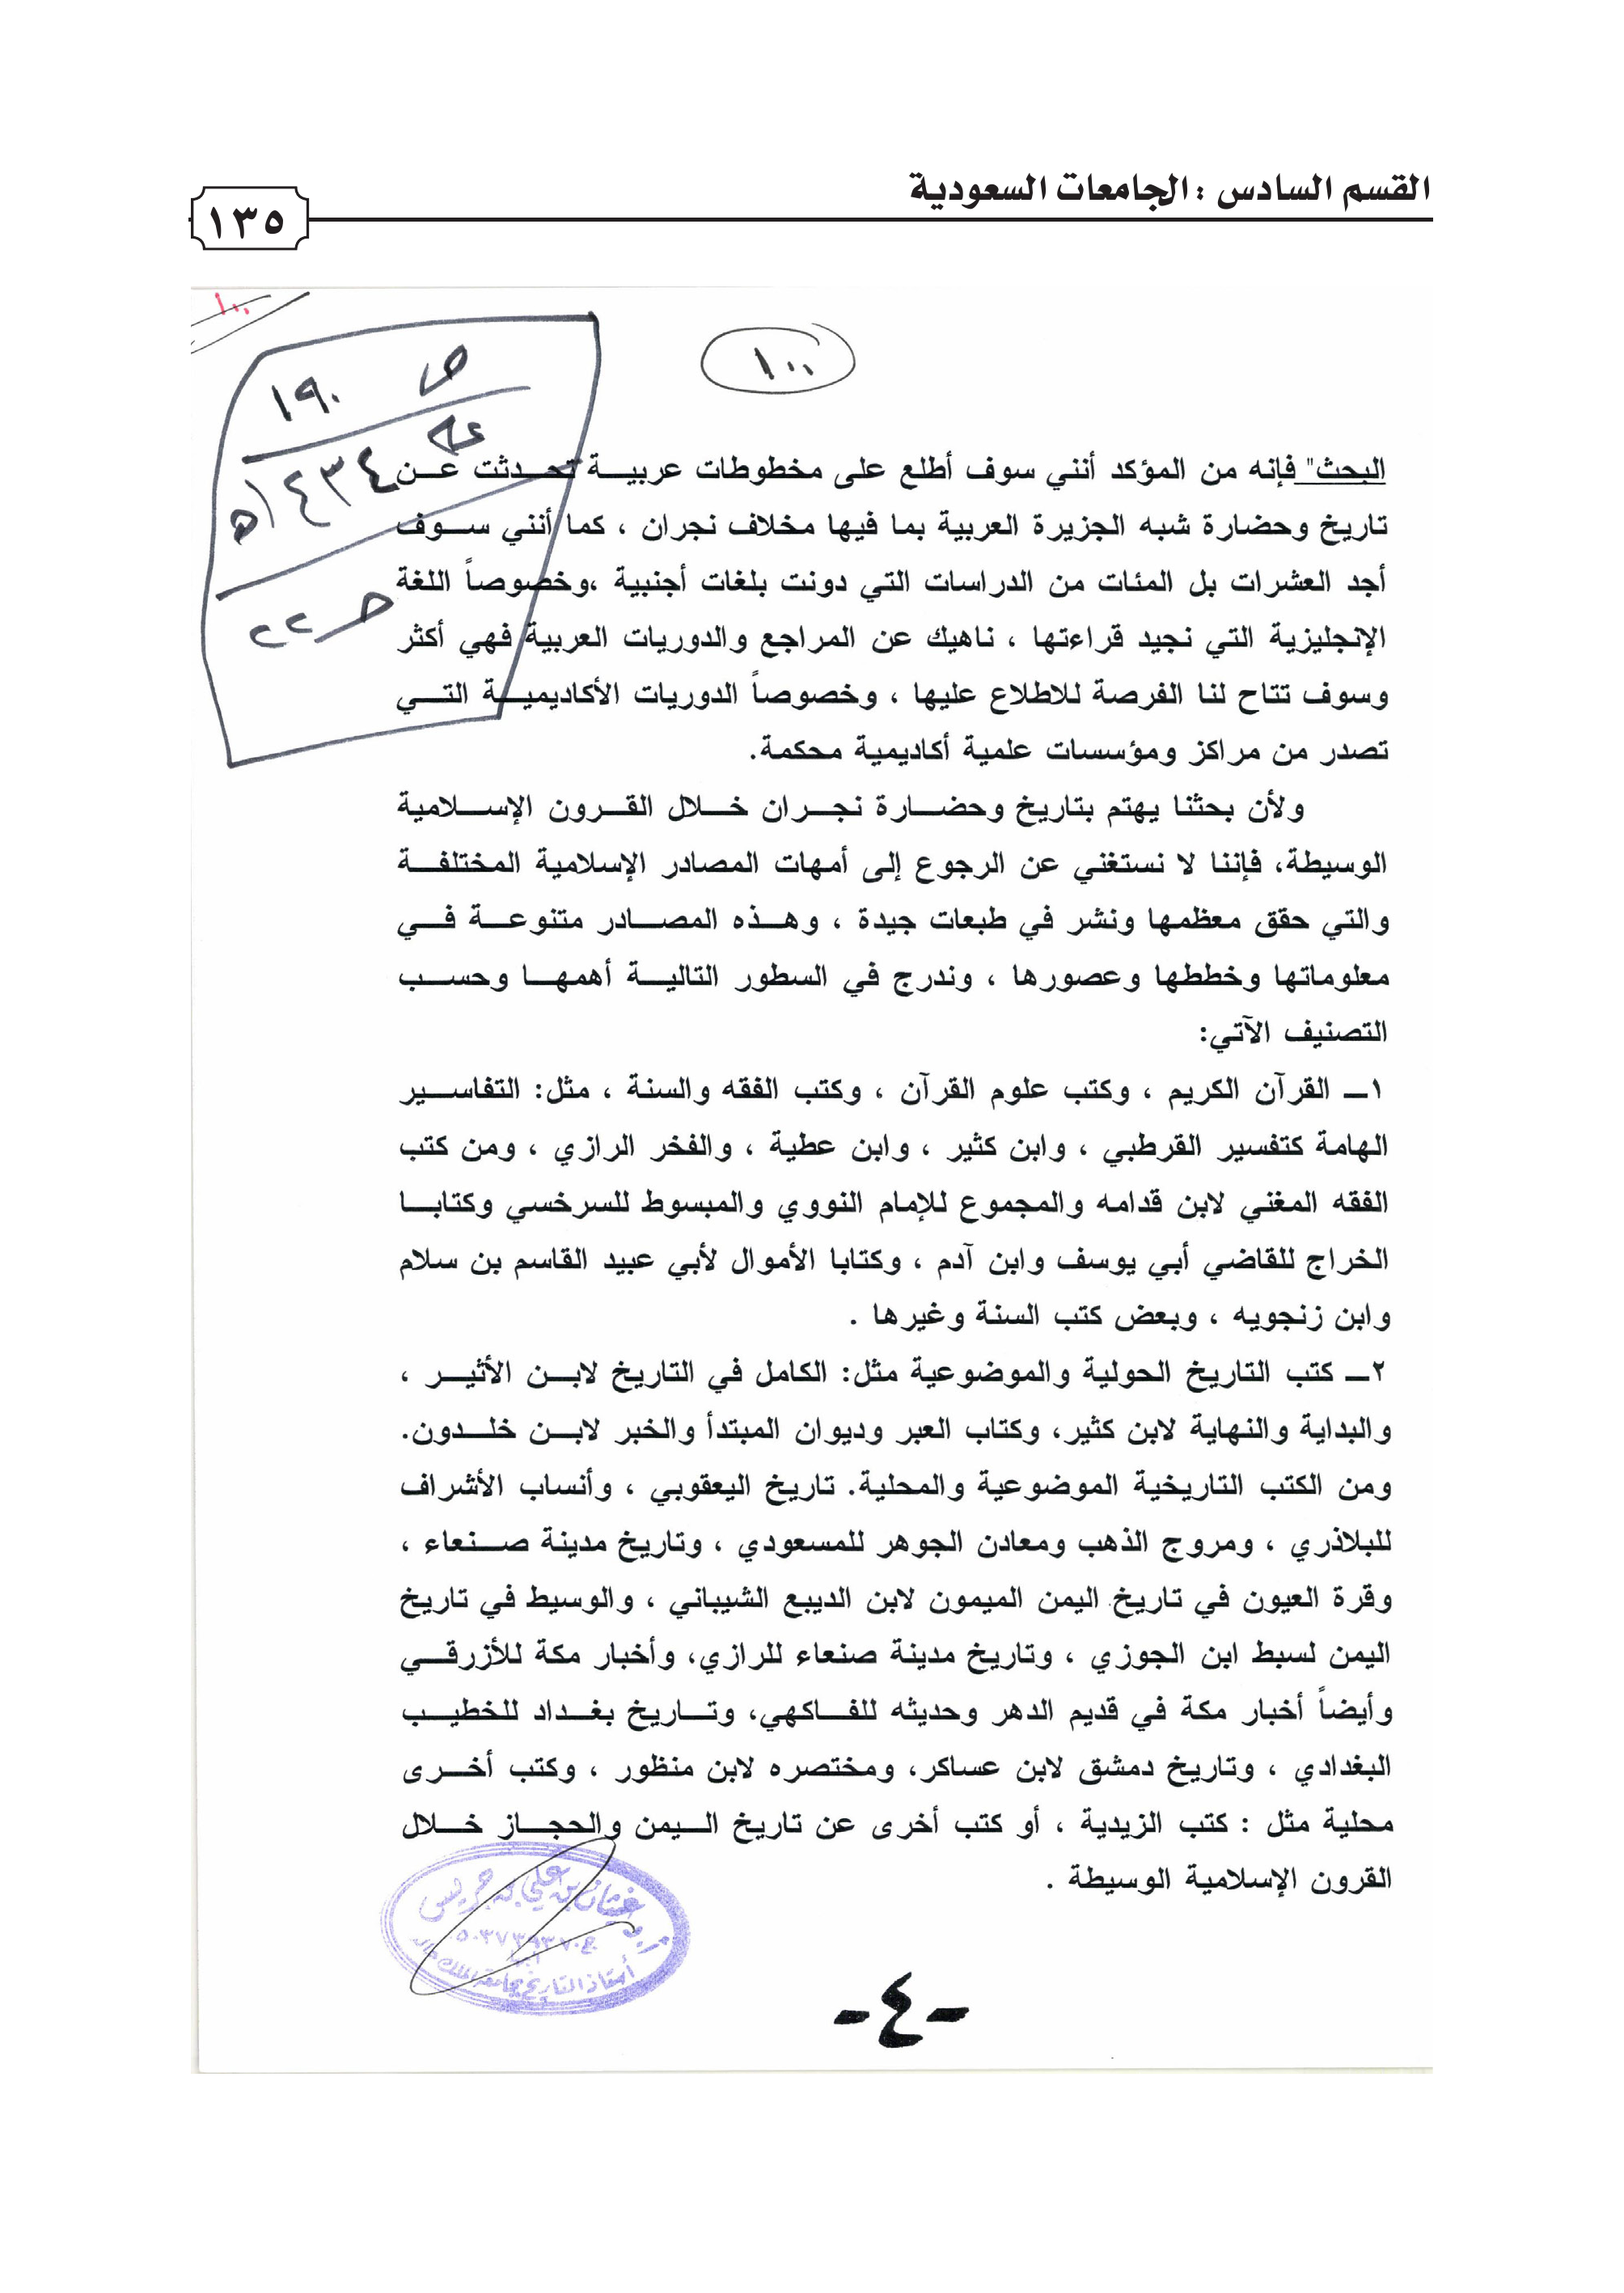 القسم السادس : الجامعات السعودية
١٣٥
١٠٠
١٠٠
ص ١٩٠
١٤٣٤هـ
حـ ٢٢
البحث" فإنه من المؤكد أنني سوف أطلع على مخطوطات عربيـــة تحـــدثت عـــن
تاريخ وحضارة شبه الجزيرة العربية بما فيها مخلاف نجران ، كما أنني ســـوف
أجد العشرات بل المئات من الدراسات التي دونت بلغات أجنبية ،وخصوصاً اللغة
الإنجليزية التي نجيد قراءتها ، ناهيك عن المراجع والدوريات العربية فهي أكثر
وسوف تتاح لنا الفرصة للاطلاع عليها ، وخصوصاً الدوريات الأكاديميـــة التـــي
تصدر من مراكز ومؤسسات علمية أكاديمية محكمة.
ولأن بحثنا يهتم بتاريخ وحضـــارة نجـــران خـــلال القـــرون الإســـلامية
الوسيطة، فإننا لا نستغني عن الرجوع إلى أمهات المصادر الإسلامية المختلفـــة
والتي حقق معظمها ونشر في طبعات جيدة ، وهـــذه المصـــادر متنوعـــة فـــي
معلوماتها وخططها وعصورها ، وندرج في السطور التاليـــة أهمهـــا وحســـب
التصنيف الآتي:
١ــ القرآن الكريم ، وكتب علوم القرآن ، وكتب الفقه والسنة ، مثل: التفاســـير
الهامة كتفسير القرطبي ، وابن كثير ، وابن عطية ، والفخر الرازي ، ومن كتب
الفقه المغني لابن قدامه والمجموع للإمام النووي والمبسوط للسرخسي وكتابـــا
الخراج للقاضي أبي يوسف وابن آدم ، وكتابا الأموال لأبي عبيد القاسم بن سلام
وابن زنجويه ، وبعض كتب السنة وغيرها .
٢ــ كتب التاريخ الحولية والموضوعية مثل: الكامل في التاريخ لابـــن الأثيـــر ،
والبداية والنهاية لابن كثير، وكتاب العبر وديوان المبتدأ والخبر لابـــن خلـــدون.
ومن الكتب التاريخية الموضوعية والمحلية. تاريخ اليعقوبي ، وأنساب الأشراف
للبلاذري ، ومروج الذهب ومعادن الجوهر للمسعودي ، وتاريخ مدينة صـــنعاء ،
وقرة العيون في تاريخ اليمن الميمون لابن الديبع الشيباني ، والوسيط في تاريخ
اليمن لسبط ابن الجوزي ، وتاريخ مدينة صنعاء للرازي، وأخبار مكة للأزرقـــي
وأيضاً أخبار مكة في قديم الدهر وحديثه للفـــاكهي، وتـــاريخ بغـــداد للخطيـــب
البغدادي ، وتاريخ دمشق لابن عساكر، ومختصره لابن منظور ، وكتب أخـــرى
محلية مثل : كتب الزيدية ، أو كتب أخرى عن تاريخ الـــيمن والحجـــاز خـــلال
القرون الإسلامية الوسيطة .
غيثان بن علي بن جريس
أستاذ التاريخ بجامعة الملك خالد
-٤-